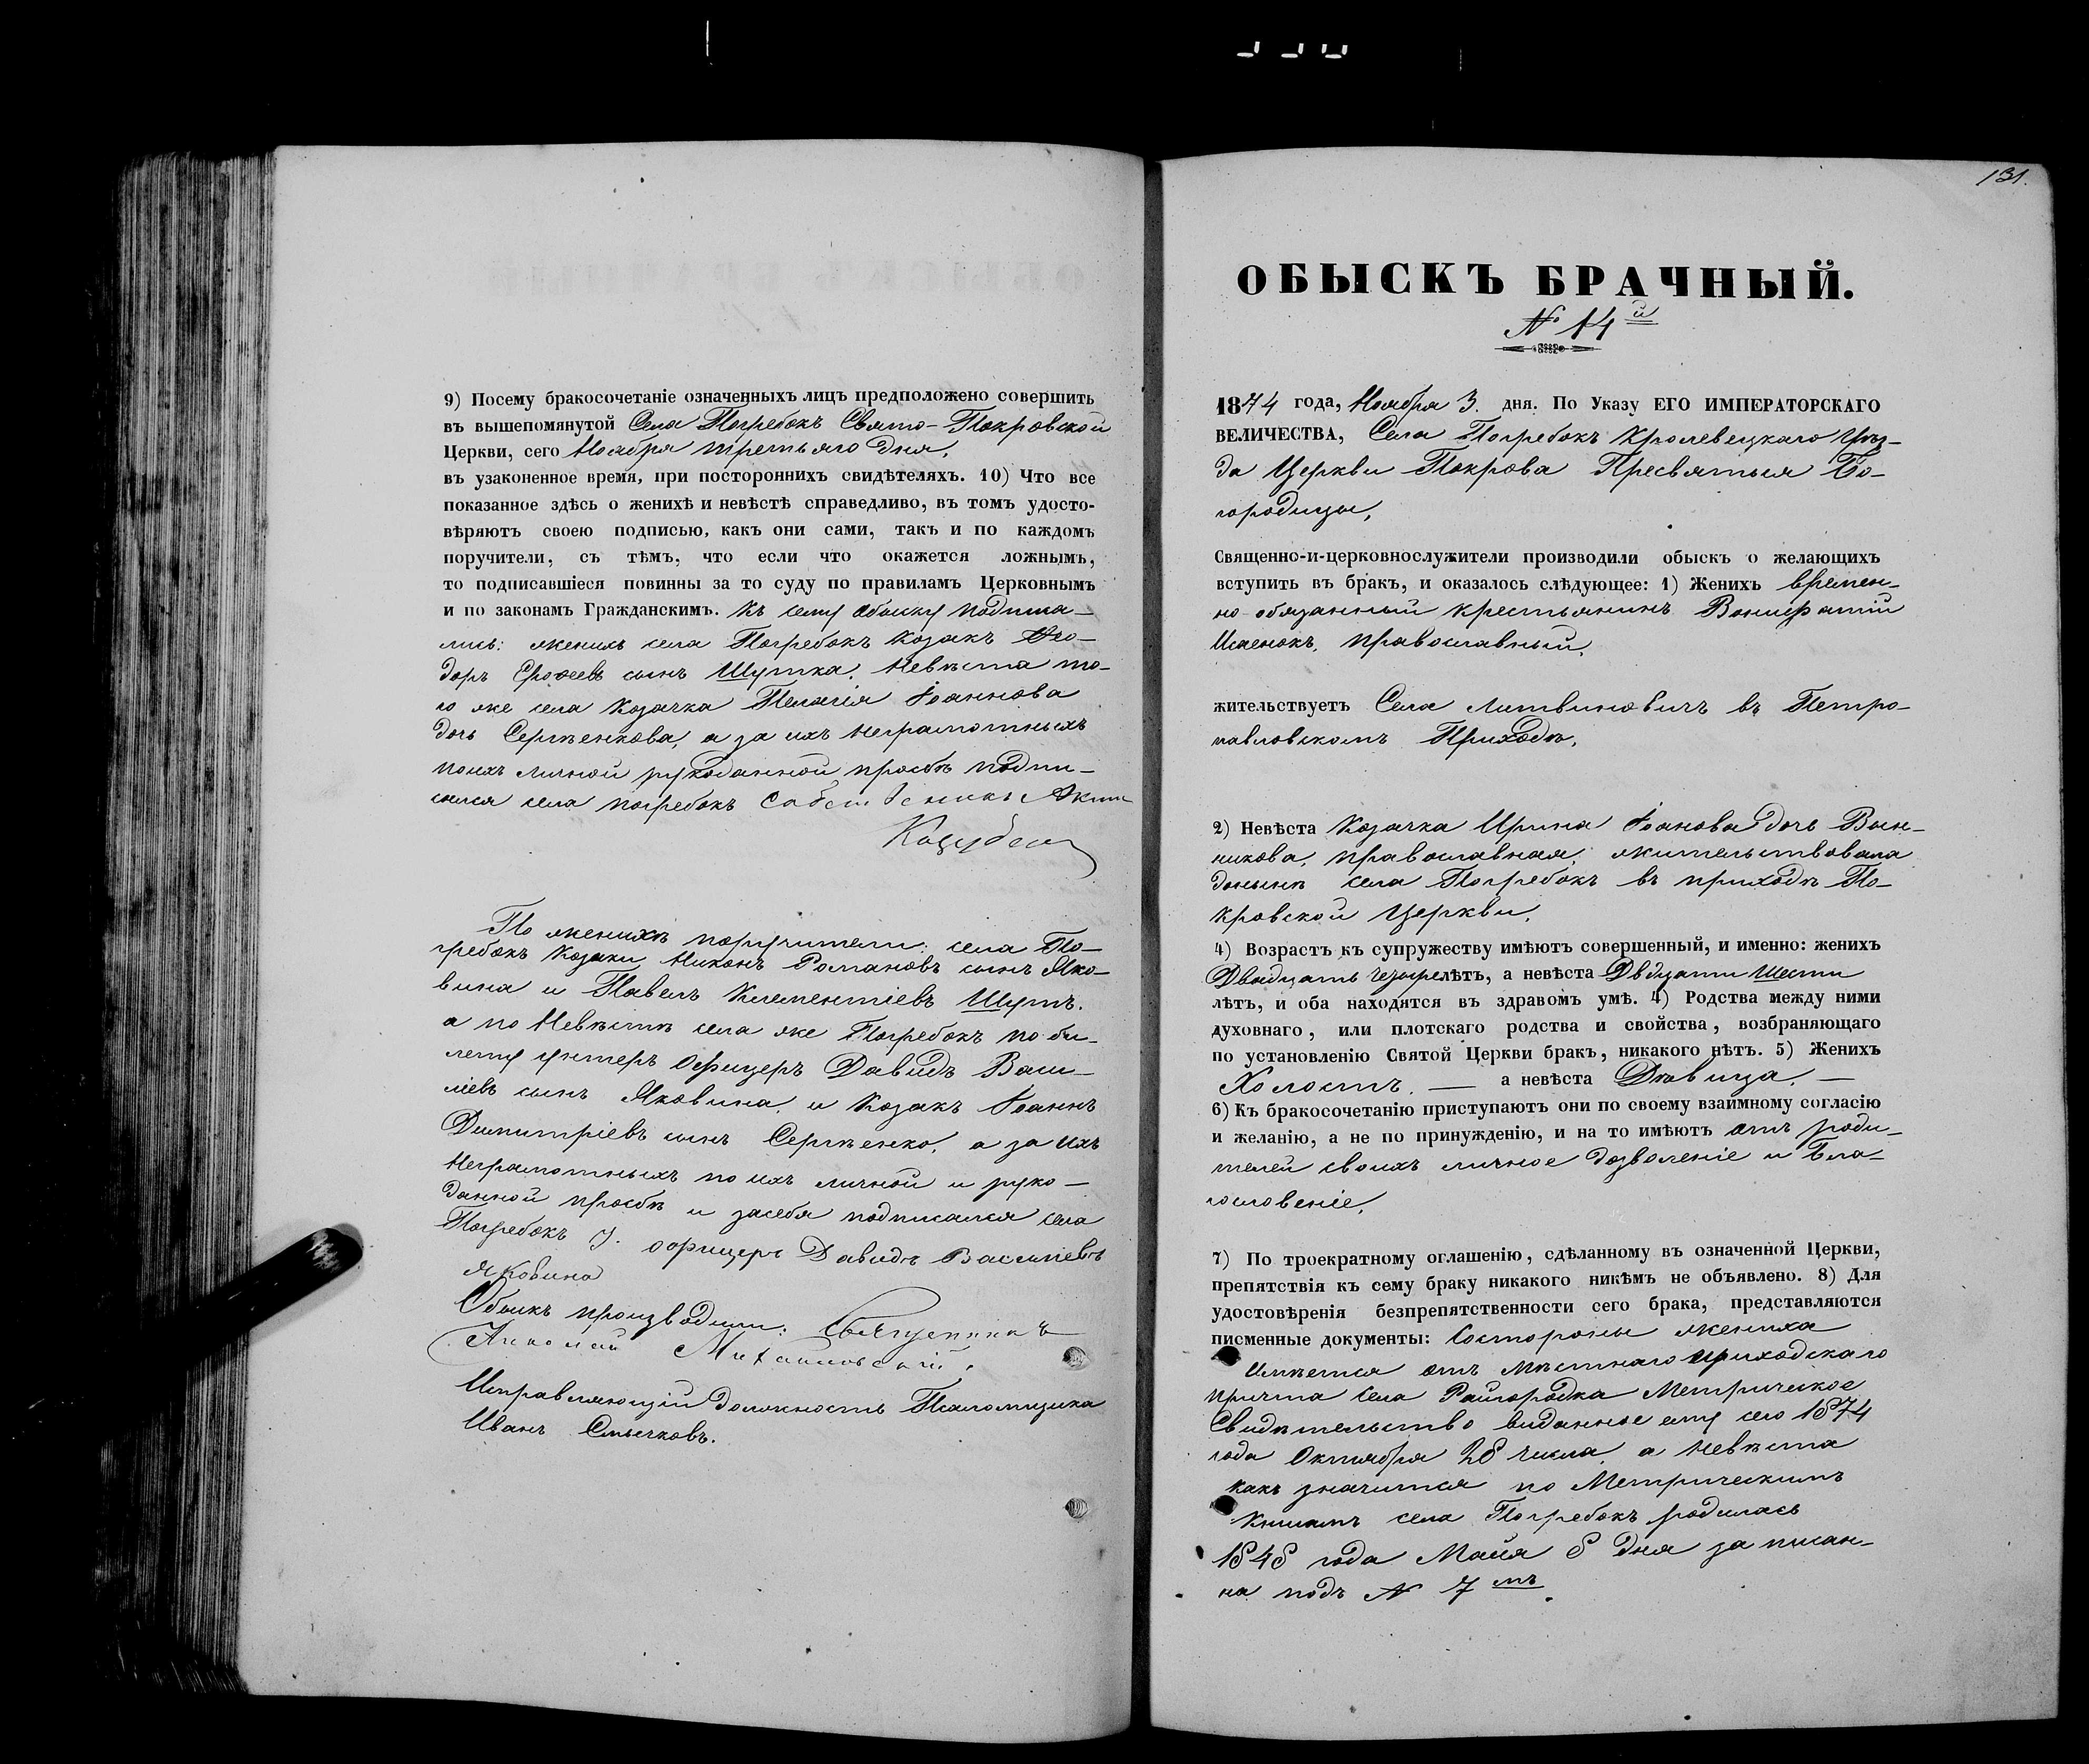 9) Посему бракосочетаніе означенныхъ лицъ предположено совершить
въ вышепомянутой Села Погребокъ Свято-Покровской
Церкви, сего Ноября третьяго дня,
въ узаконенное время, при постороннихъ свидѣтеляхъ. 10) Что все
показанное здѣсь о женихѣ и невѣстѣ справедливо, въ томъ удосто-
вѣряютъ своею подписью, какъ они сами, такъ и по каждомъ
поручители, съ тѣмъ, что если что окажется ложнымъ,
то подписавшіеся повинны за то суду по правиламъ Церковнымъ
и по законамъ Гражданскимъ. Къ сему обыску подписа-
лись: женихъ села Погребокъ козакъ Ѳео-
доръ сынъ Шутка, Невѣста то-
го же села козачка Пелагія Іоаннова
дочь Сергѣенкова, а за ихъ неграмотныхъ
поихъ личной рукоданной просьбѣ подпи-
сался села погребокъ Собственикъ
Коцубен
По женихѣ поручители: села По-
гребокъ Козаки Никонъ Романовъ сынъ Яко-
вина и Павелъ Климентіевъ Шутъ.
а по Невѣстѣ села же Погребокъ по би-
лету унтеръ офицеръ Давидъ Васи-
ліевъ сынъ Яковина, и Козакъ Іоаннъ
Димитріевъ сынъ Сергѣенко, а за ихъ
неграмотныхъ по ихъ личной и руко-
данной просьбѣ и засебя подписался села
Погребокъ У. офицеръ Давидъ Васильевъ
Яковина
Обыскъ производили: Священникъ
Николай Михайловскій.
Исправляющій должность Псаломщика
Иванъ Смычковъ.
131.
ОБЫСКЪ БРАЧНЫЙ.
№ 14й
1874 года, Ноября 3. дня. По Указу ЕГО ИМПЕРАТОРСКАГО
ВЕЛИЧЕСТВА, Села Погребокъ Кролевецкаго Уѣз-
да Церкви Покрова Пресвятыя Бо-
городицы,
Священно-и-церковнослужители производили обыскъ о желающихъ
вступить въ бракъ, и оказалось слѣдующее: 1) Женихъ Времен-
но-обязанный крестьянинъ Вонифатій
Исаенокъ, православный,
жительствуетъ Села Литвиновичъ въ Петро-
павловскомъ Приходѣ,
2) Невѣста Козачка Ирина Іоанова дочь Вын-
никова, православная, жительствовала
донынѣ села Погребокъ въ приходѣ По-
кровской Церкви,
4) Возрастъ къ супружеству имѣютъ совершенный, и именно: женихъ
Двадцать лѣтъ, а невѣста Двдцати Шести
лѣтъ, и оба находятся въ здравомъ умѣ. 4) Родства между ними
духовнаго, или плотскаго родства и свойства, возбраняющаго
по установленію Святой Церкви бракъ, никакого нѣтъ. 5) Женихъ
Холостъ. — а невѣста Дѣвица. —
6) Къ бракосочетанію приступаютъ они по своему взаимному согласію
и желанію, а не по принужденію, и на то имѣютъ отъ роди-
телей своихъ личное дозволеніе и Бла-
гословеніе,
7) По троекратному оглашенію, сдѣланному въ означенной Церкви,
препятствія къ сему браку никакого никѣмъ не объявлено. 8) Для
удостовѣренія безпрепятственности сего брака, представляются
писменные документы: Состороны жениха
Имѣется отъ мѣстнаго приходскаго
причта села Райгородка Метрическое
Свидѣтельство виданное ему сего 1874
года Октября 28 числа, а невѣста
какъ значится по Метрическимъ
Книгамъ села Погребокъ родилась
1848 года Майя 8 дня записан-
на подъ № 7мъ.